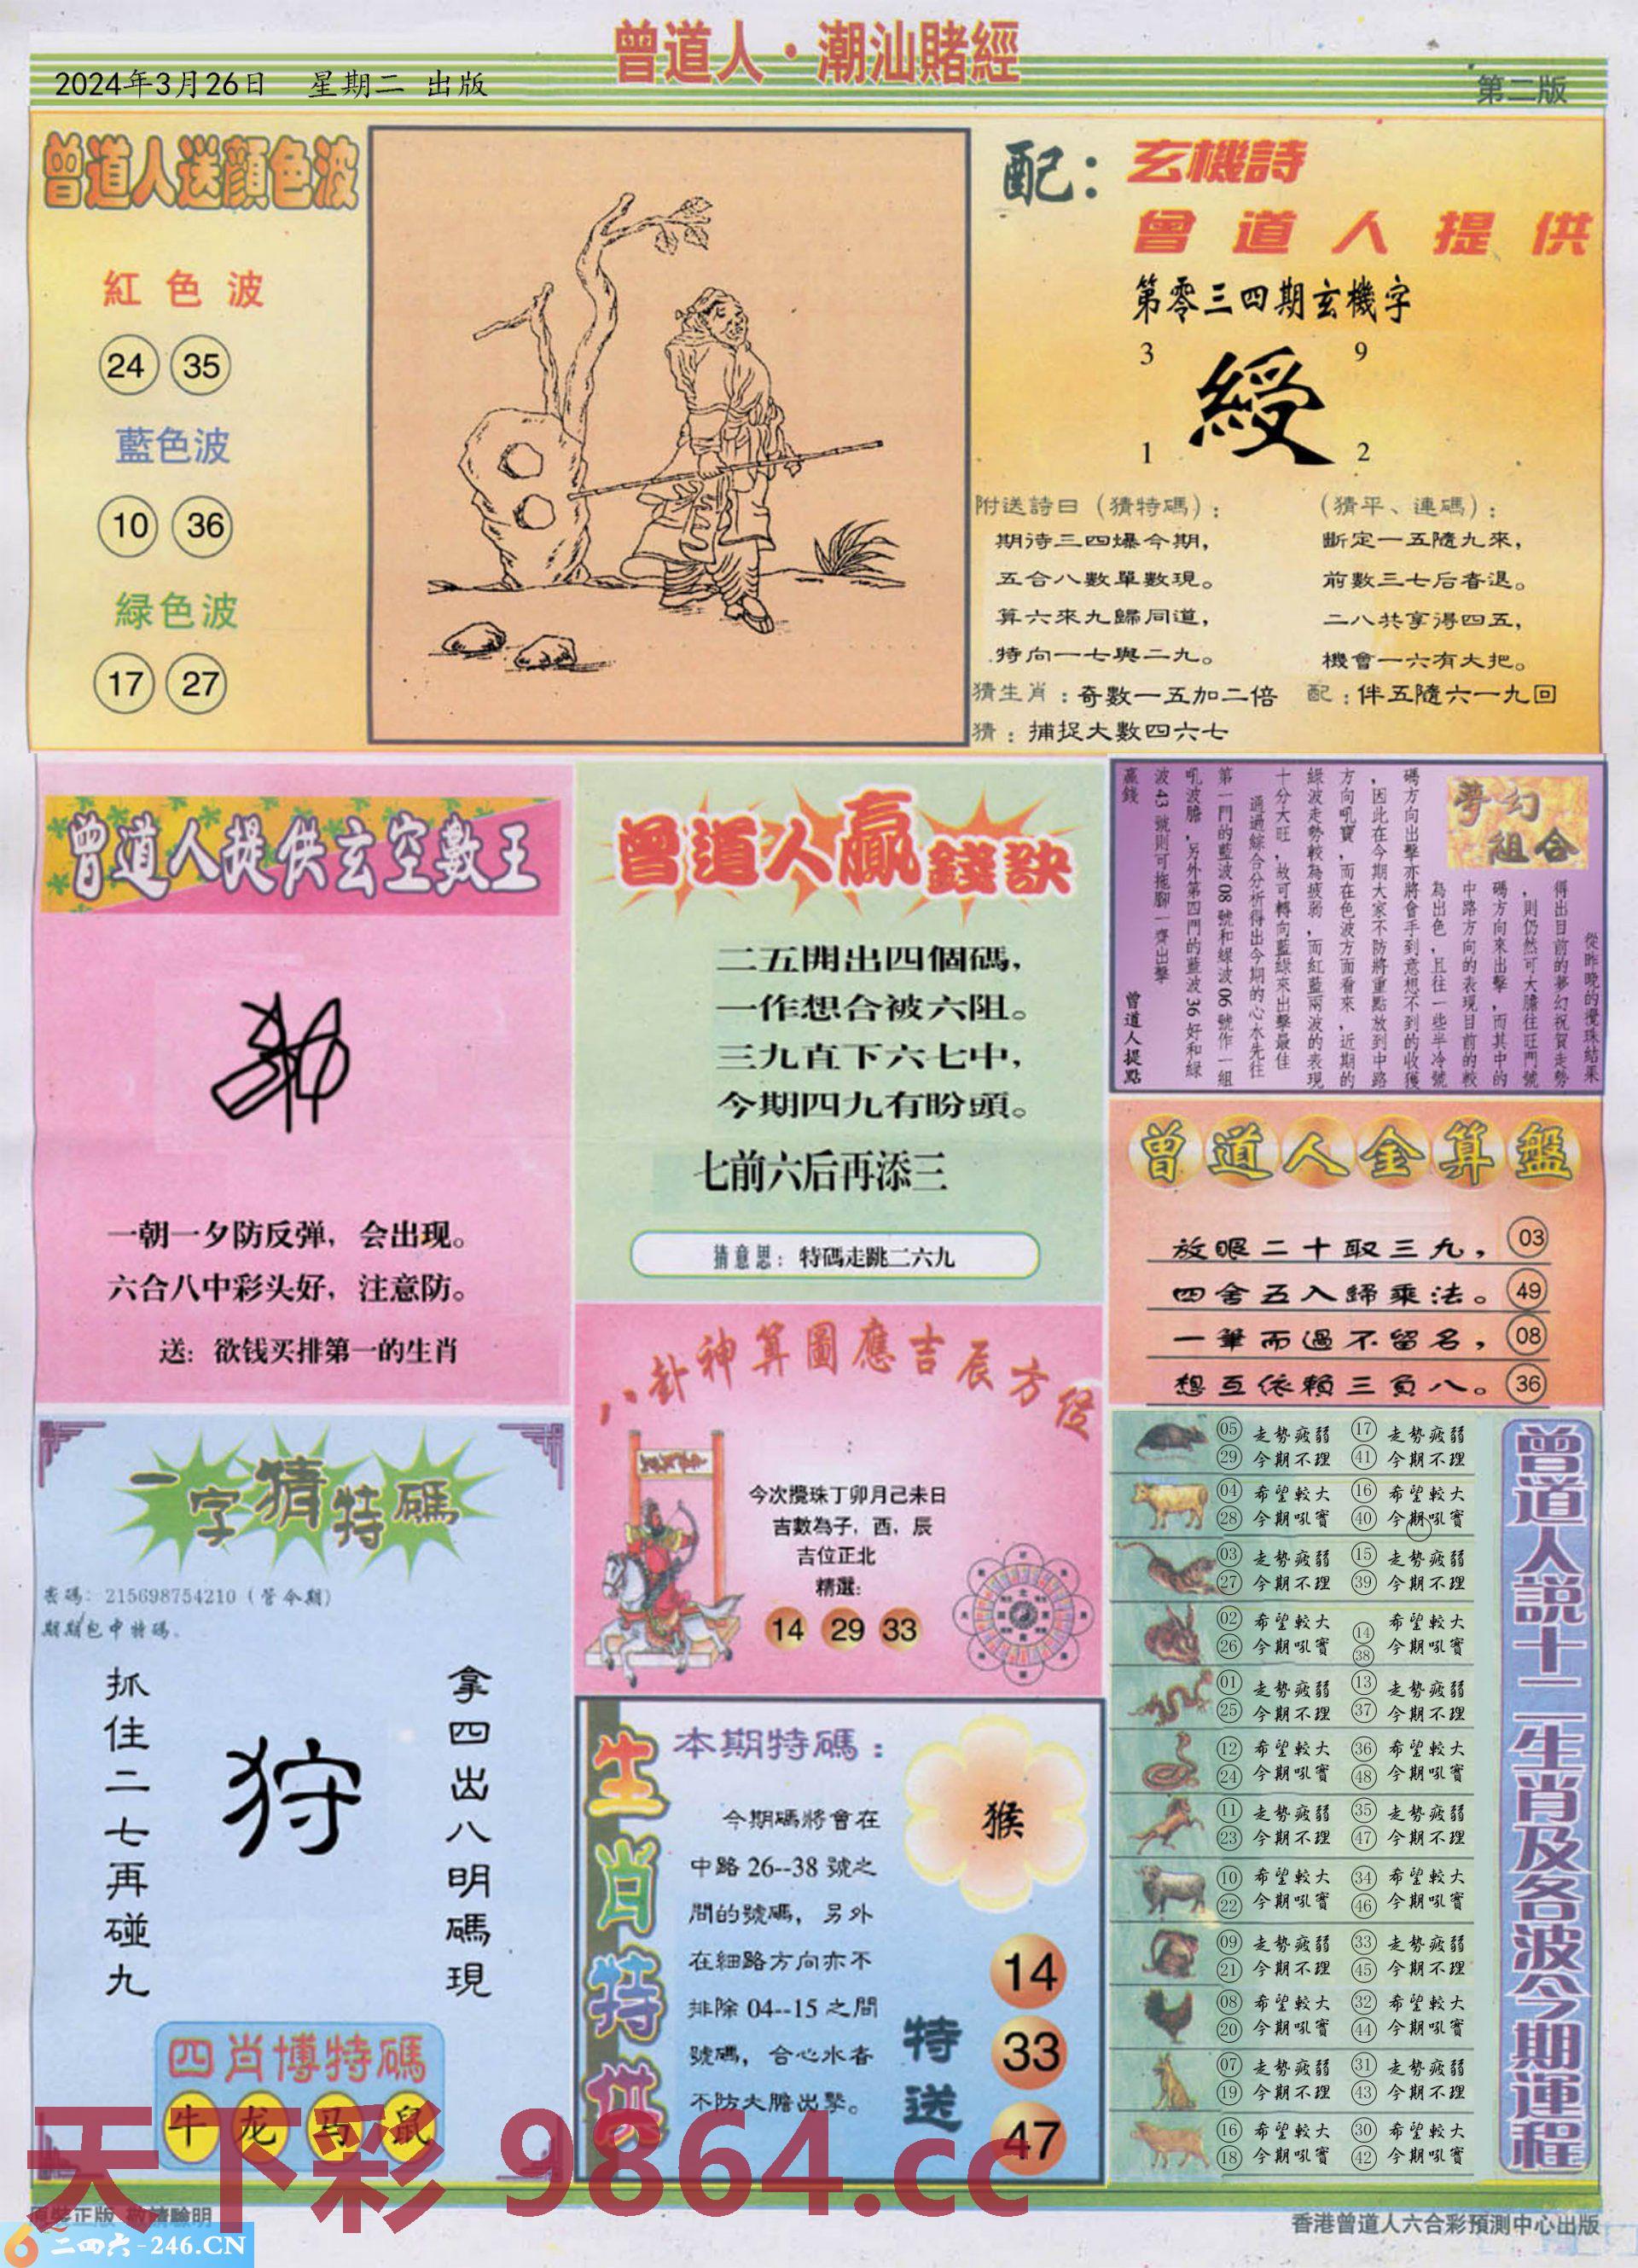 曾道人·潮汕賭經
2024年3月26日 星期二 出版
第二版
曾道人送顏色波
紅色波
24 35
藍色波
10 36
緑色波
17 27
配：玄機詩
曾道人提供
第零三四期玄機字
3 9
綬
1 2
附送詩曰（猜特碼）：
期待三四爆今期，
五合八數單數現。
算六來九歸同道，
特向一七與二九。
（猜平、連碼）：
斷定一五隨九來，
前數三七后者退。
二八共享得四五，
機會一六有大把。
猜生肖：奇數一五加二倍
配：伴五隨六一九回
猜：捕捉大數四六七
曾道人提供玄空數王
一朝一夕防反弹，会出现。
六合八中彩头好，注意防。
送：欲钱买排第一的生肖
曾道人贏錢訣
二五開出四個碼，
一作想合被六阻。
三九直下六七中，
今期四九有盼頭。
七前六后再添三
猜意思：特碼走跳二六九
夢幻
組合
從昨晚的攪珠結果
得出目前的夢幻祝賀走勢
，則仍然可大膽往旺門號
碼方向來出擊，而其中的
中路方向的表現目前的較
為出色，且往一些半冷號
碼方向出擊亦將會手到意想不到的收獲
，因此在今期大家不防將重點放到中路
方向吼寶，而在色波方面看來，近期的
緑波走勢較為疲弱，而紅藍兩波的表現
十分大旺，故可轉向藍緑來出擊最佳
通過綜合分析得出今期的心水先往
第一門的藍波08號和緑波06號作一組
吼波膽，另外第四門的藍波36好和緑
波43號則可拖腳一齊出擊
贏錢
曾道人提點
曾道人金算盤
放眼二十取三九， 03
四舍五入歸乘法。 49
一筆而過不留名， 08
想互依賴三負八。 36
一字猜特碼
密碼：215698754210（管今期）
期期包中特碼.
抓住二七再碰九
狩
拿四出八明碼現
四肖博特碼
牛 龙 马 鼠
八卦神算圖應吉辰方位
今次攪珠丁卯月己未日
吉數為子，酉，辰
吉位正北
精選：
14 29 33
生肖特供
本期特碼：
今期碼將會在
中路26--38號之
間的號碼，另外
在細路方向亦不
排除04--15之間
號碼，合心水者
不防大膽出擊。
猴
特送
14
33
47
曾道人說十二生肖及各波今期運程
05 走勢疲弱 17 走勢疲弱
29 今期不理 41 今期不理
04 希望較大 16 希望較大
28 今期吼寶 40 今期吼寶
03 走勢疲弱 15 走勢疲弱
27 今期不理 39 今期不理
02 希望較大 14 希望較大
26 今期吼寶 38 今期吼寶
01 走勢疲弱 13 走勢疲弱
25 今期不理 37 今期不理
12 希望較大 36 希望較大
24 今期吼寶 48 今期吼寶
11 走勢疲弱 35 走勢疲弱
23 今期不理 47 今期不理
10 希望較大 34 希望較大
22 今期吼寶 46 今期吼寶
09 走勢疲弱 33 走勢疲弱
21 今期不理 45 今期不理
08 希望較大 32 希望較大
20 今期吼寶 44 今期吼寶
07 走勢疲弱 31 走勢疲弱
19 今期不理 43 今期不理
16 希望較大 30 希望較大
18 今期吼寶 42 今期吼寶
天下彩 9864.cc
原裝正版 敬請驗明
二四六-246.CN
香港曾道人六合彩預測中心出版